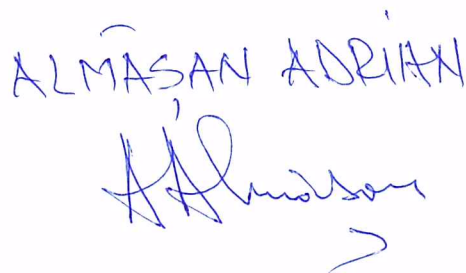 ALMĂȘAN ADRIAN
AAlmășan